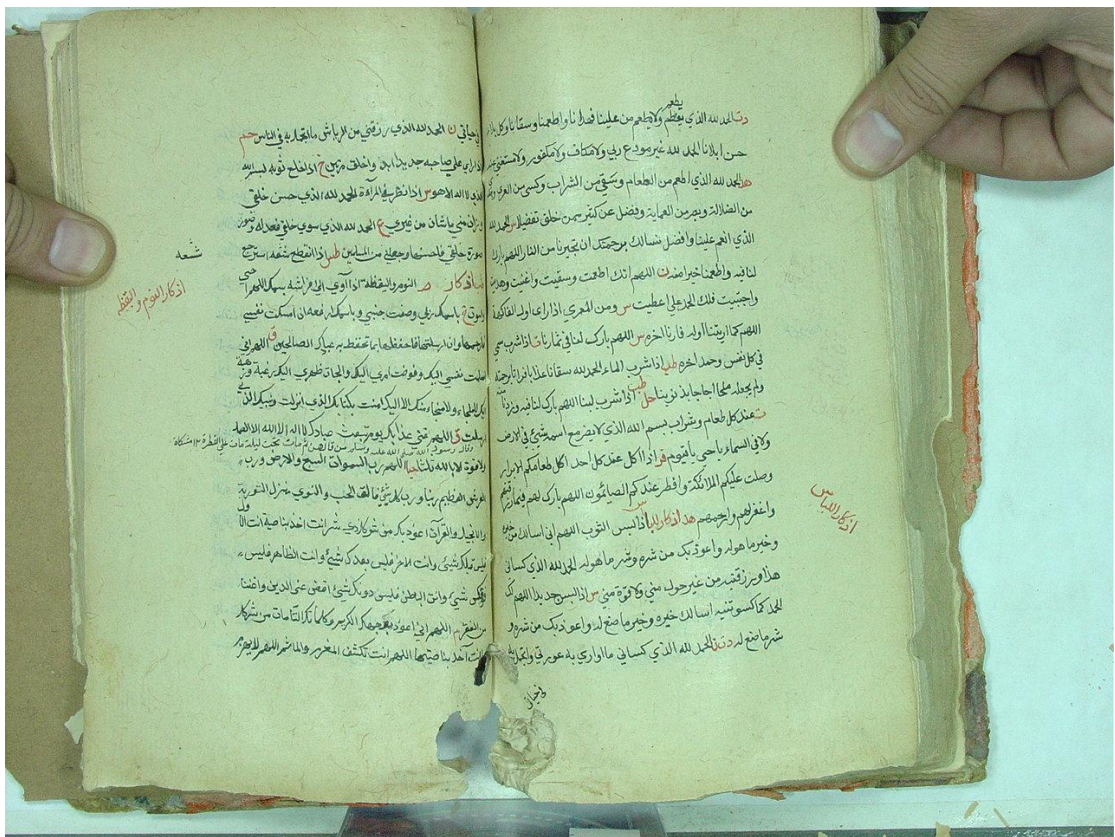 الحمد لله الذي يطعم ولا يطعم من علينا فهدانا واطعمنا وسقانا وكل بلاء
حسن ابلانا الحمد لله غير مودع ربي ولا مكاف ولا مكفور ولا مستغنى عنه
الحمد لله الذي اطعم من الطعام وسقى من الشراب وكسى من العرى
من الضلالة وبصر من العماية وفضل على كثير ممن خلق تفضيلا س الحمد لله
الذي انعم علينا وافضل نسالك برحمتك ان تجيرنا من النار اللهم بارك
لنا فيه واطعمنا خيرا منه ن اللهم انك اطعمت وسقيت واغنيت
واجتبيت فلك الحمد على ما اعطيت س ومن المعري اذا راى اول الفاكهة
اللهم كما اريتنا اوله فارنا اخره س اللهم بارك لنا في ثمارنا اذا شرب سمى
في كل نفس وحمد اخره طب اذا شرب الماء الحمد لله سقانا عذبا فراتا برحمته
ولم يجعله ملحا اجاجا بذنوبنا حل طب اذا شرب لبنا اللهم بارك لنا فيه وزدنا منه
عند كل طعام وشراب بسم الله الذي لا يضر مع اسمه شيئ في الارض
ولا في السماء يا حي يا قيوم فر اذا اكل عند كل احد اكل طعامكم الابرار
وصلت عليكم الملائكة وافطر عندكم الصائمون اللهم بارك لهم فيما رزقتهم
واغفر لهم وارحمهم هد اذكار اللباس اذا لبس الثوب اللهم اني اسالك من خيره
وخير ما هو له واعوذ بك من شره وشر ما هو له الحمد لله الذي كساني
هذا ورزقنيه من غير حول مني ولا قوة مني س اذا لبس جديدا اللهم لك
الحمد كما كسوتنيه اسالك خيره وخير ما صنع له واعوذ بك من شره و
شر ما صنع له الحمد لله الذي كساني ما اواري به عورتي واتجمل به
في حياتي
اذكار اللباس
في حياتي ن الحمد لله الذي رزقني من الرياش ما اتجمل به في الناس
اذا راى على صاحبه جديدا ابل واخلق اذا خلع ثوبه بسم الله
الذي لا اله الا هو س اذا نظر في المرآة الحمد لله الذي حسن خلقي
وزان مني ما شان من غيري ع الحمد لله الذي سوى خلقي فعدله
صورة خلقي فاحسنها وجعلني من المسلمين طس اذا انقطع شسعه استرجع
اذكار النوم واليقظة اذا اوى الى فراشه بسمك اللهم احيى
واموت خ باسمك ربي وضعت جنبي وباسمك ارفعه ان امسكت نفسي
فارحمها وان ارسلتها فاحفظها بما تحفظ به عبادك الصالحين ق اللهم اني
اسلمت نفسي اليك وفوضت امري اليك والجات ظهري اليك رغبة ورهبة
اليك لا ملجاء ولا منجاء منك الا اليك امنت بكتابك الذي انزلت ونبيك الذي
ارسلت ق اللهم قني عذابك يوم تبعث عبادك لا اله الا الله
وقال رسول الله صلى الله عليه وسلم من قالهن ثم مات تحت ليلته مات على الفطرة مشكاة
ولا قوة الا بالله اللهم رب السموات السبع والارض ورب
العرش العظيم ربنا ورب كل شيئ فالق الحب والنوى منزل التورية
والانجيل والقرآن اعوذ بك من شر كل ذي شر انت اخذ بناصيته انت الاول
فليس قبلك شيئ وانت الاخر فليس بعدك شيئ وانت الظاهر فليس
فوقك شيئ وانت الباطن فليس دونك شيئ اقض عني الدين واغننا
من الفقر م اللهم اني اعوذ بوجهك الكريم وكلماتك التامات من شر كل
انت اخذ بناصيتها اللهم انت تكشف المغرم والماثم اللهم لا يهزم
شسعه
اذكار النوم واليقظه